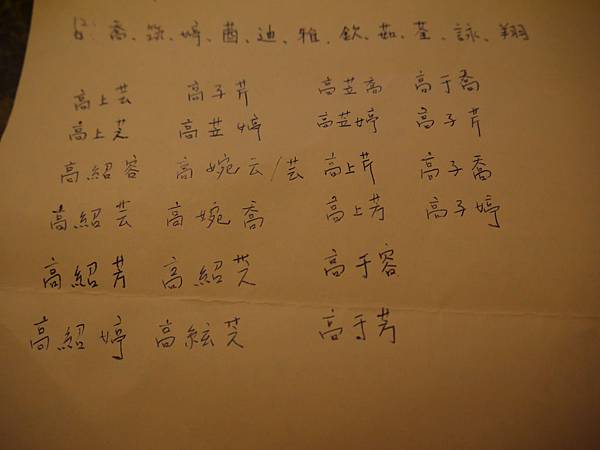 喬、筑、婷、茜、迪、雅、欽、茹、荃、詠、翔
高上芸 高子芹 高苙高 高于喬
高上芝 高苙婷 高苙婷 高子芹
高紹容 高婉云/芸 高上芹 高子喬
高紹芸 高婉喬 高上芳 高子婷
高紹芳 高紹芝 高于容
高紹婷 高絃芝 高于芳